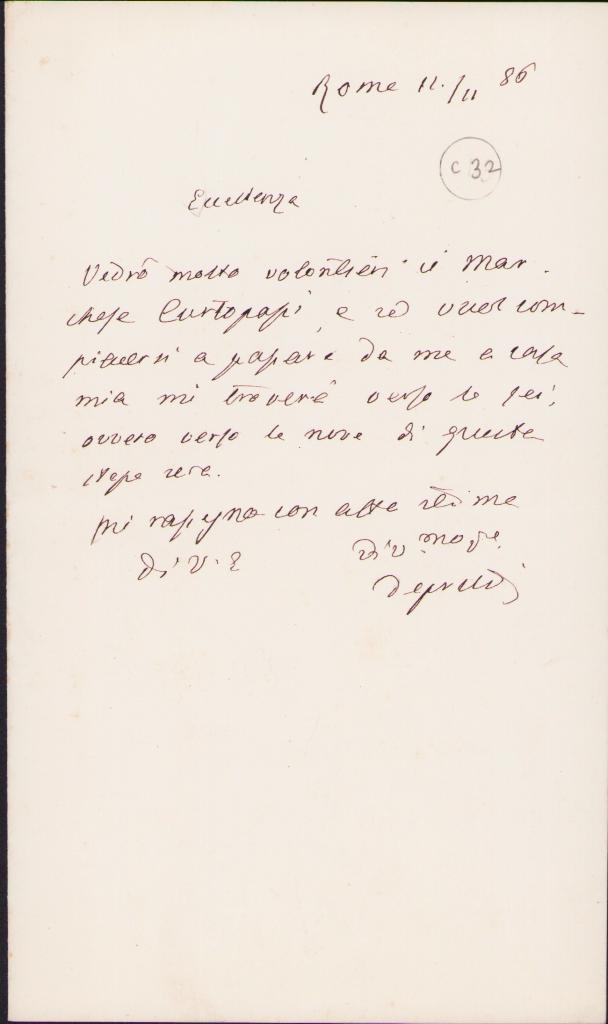 Roma 12./11 86
C 32
Eccellenza
Vedrò molto volontieri il Mar-
chese Curtopassi, e se vuol com-
piacersi a passare da me a casa
mia mi troverà verso le sei,
ovvero verso le nove di questa
stessa sera.
Mi rassegno con alta stima
di V. E
Depretis